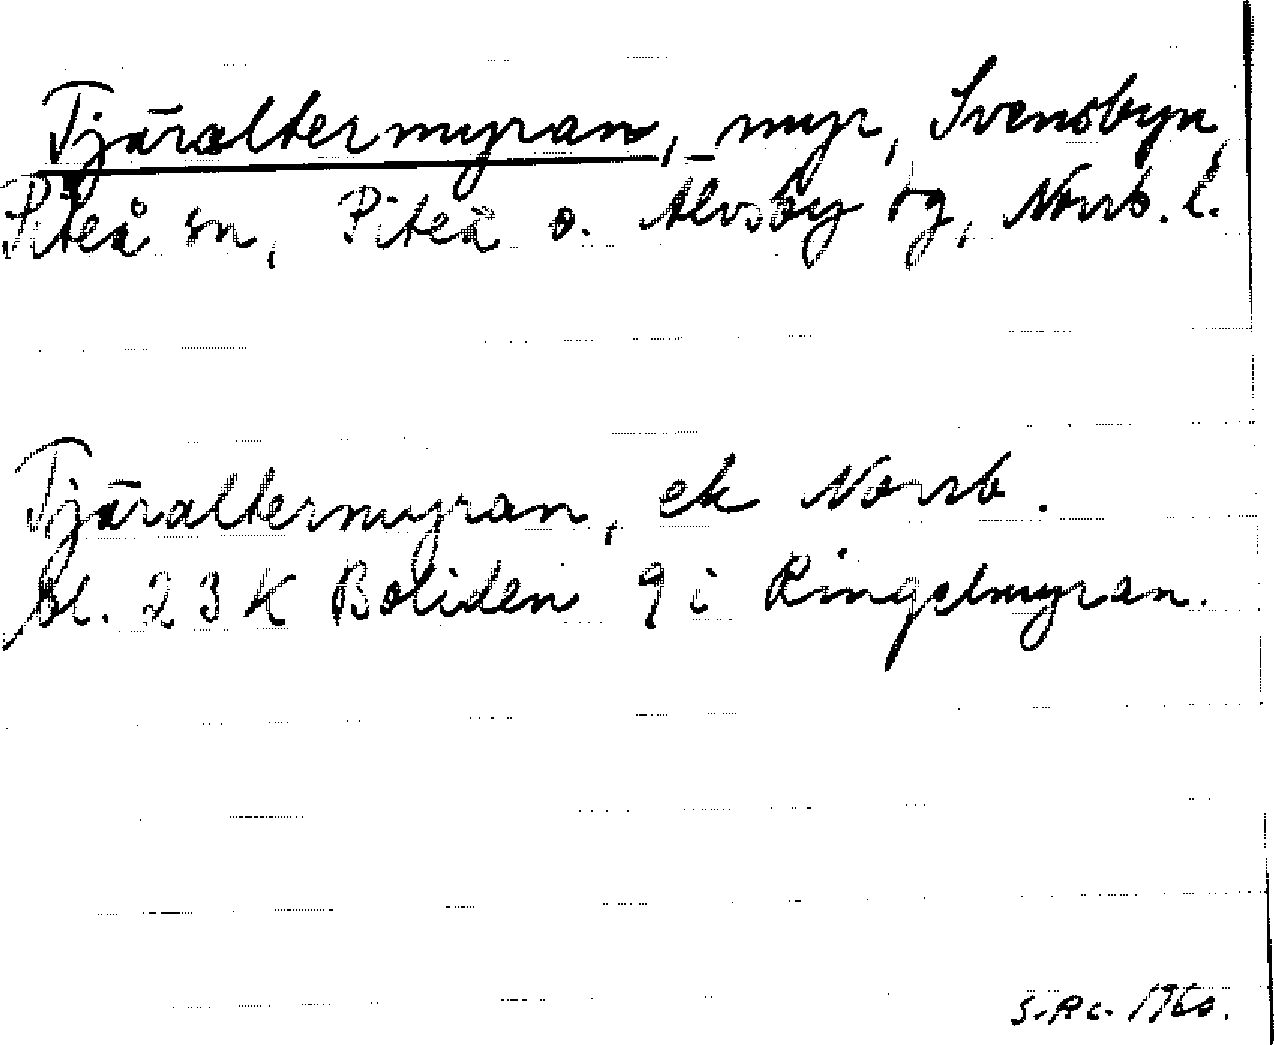 Tjäraltermyran, myr, Svensbyn,
Piteå sn, Piteå o. Älvsby tg, Norrb. l.
Tjäraltermyran, ek Norrb.
bl. 23 K Boliden 9 i Ringelmyran.
1960.